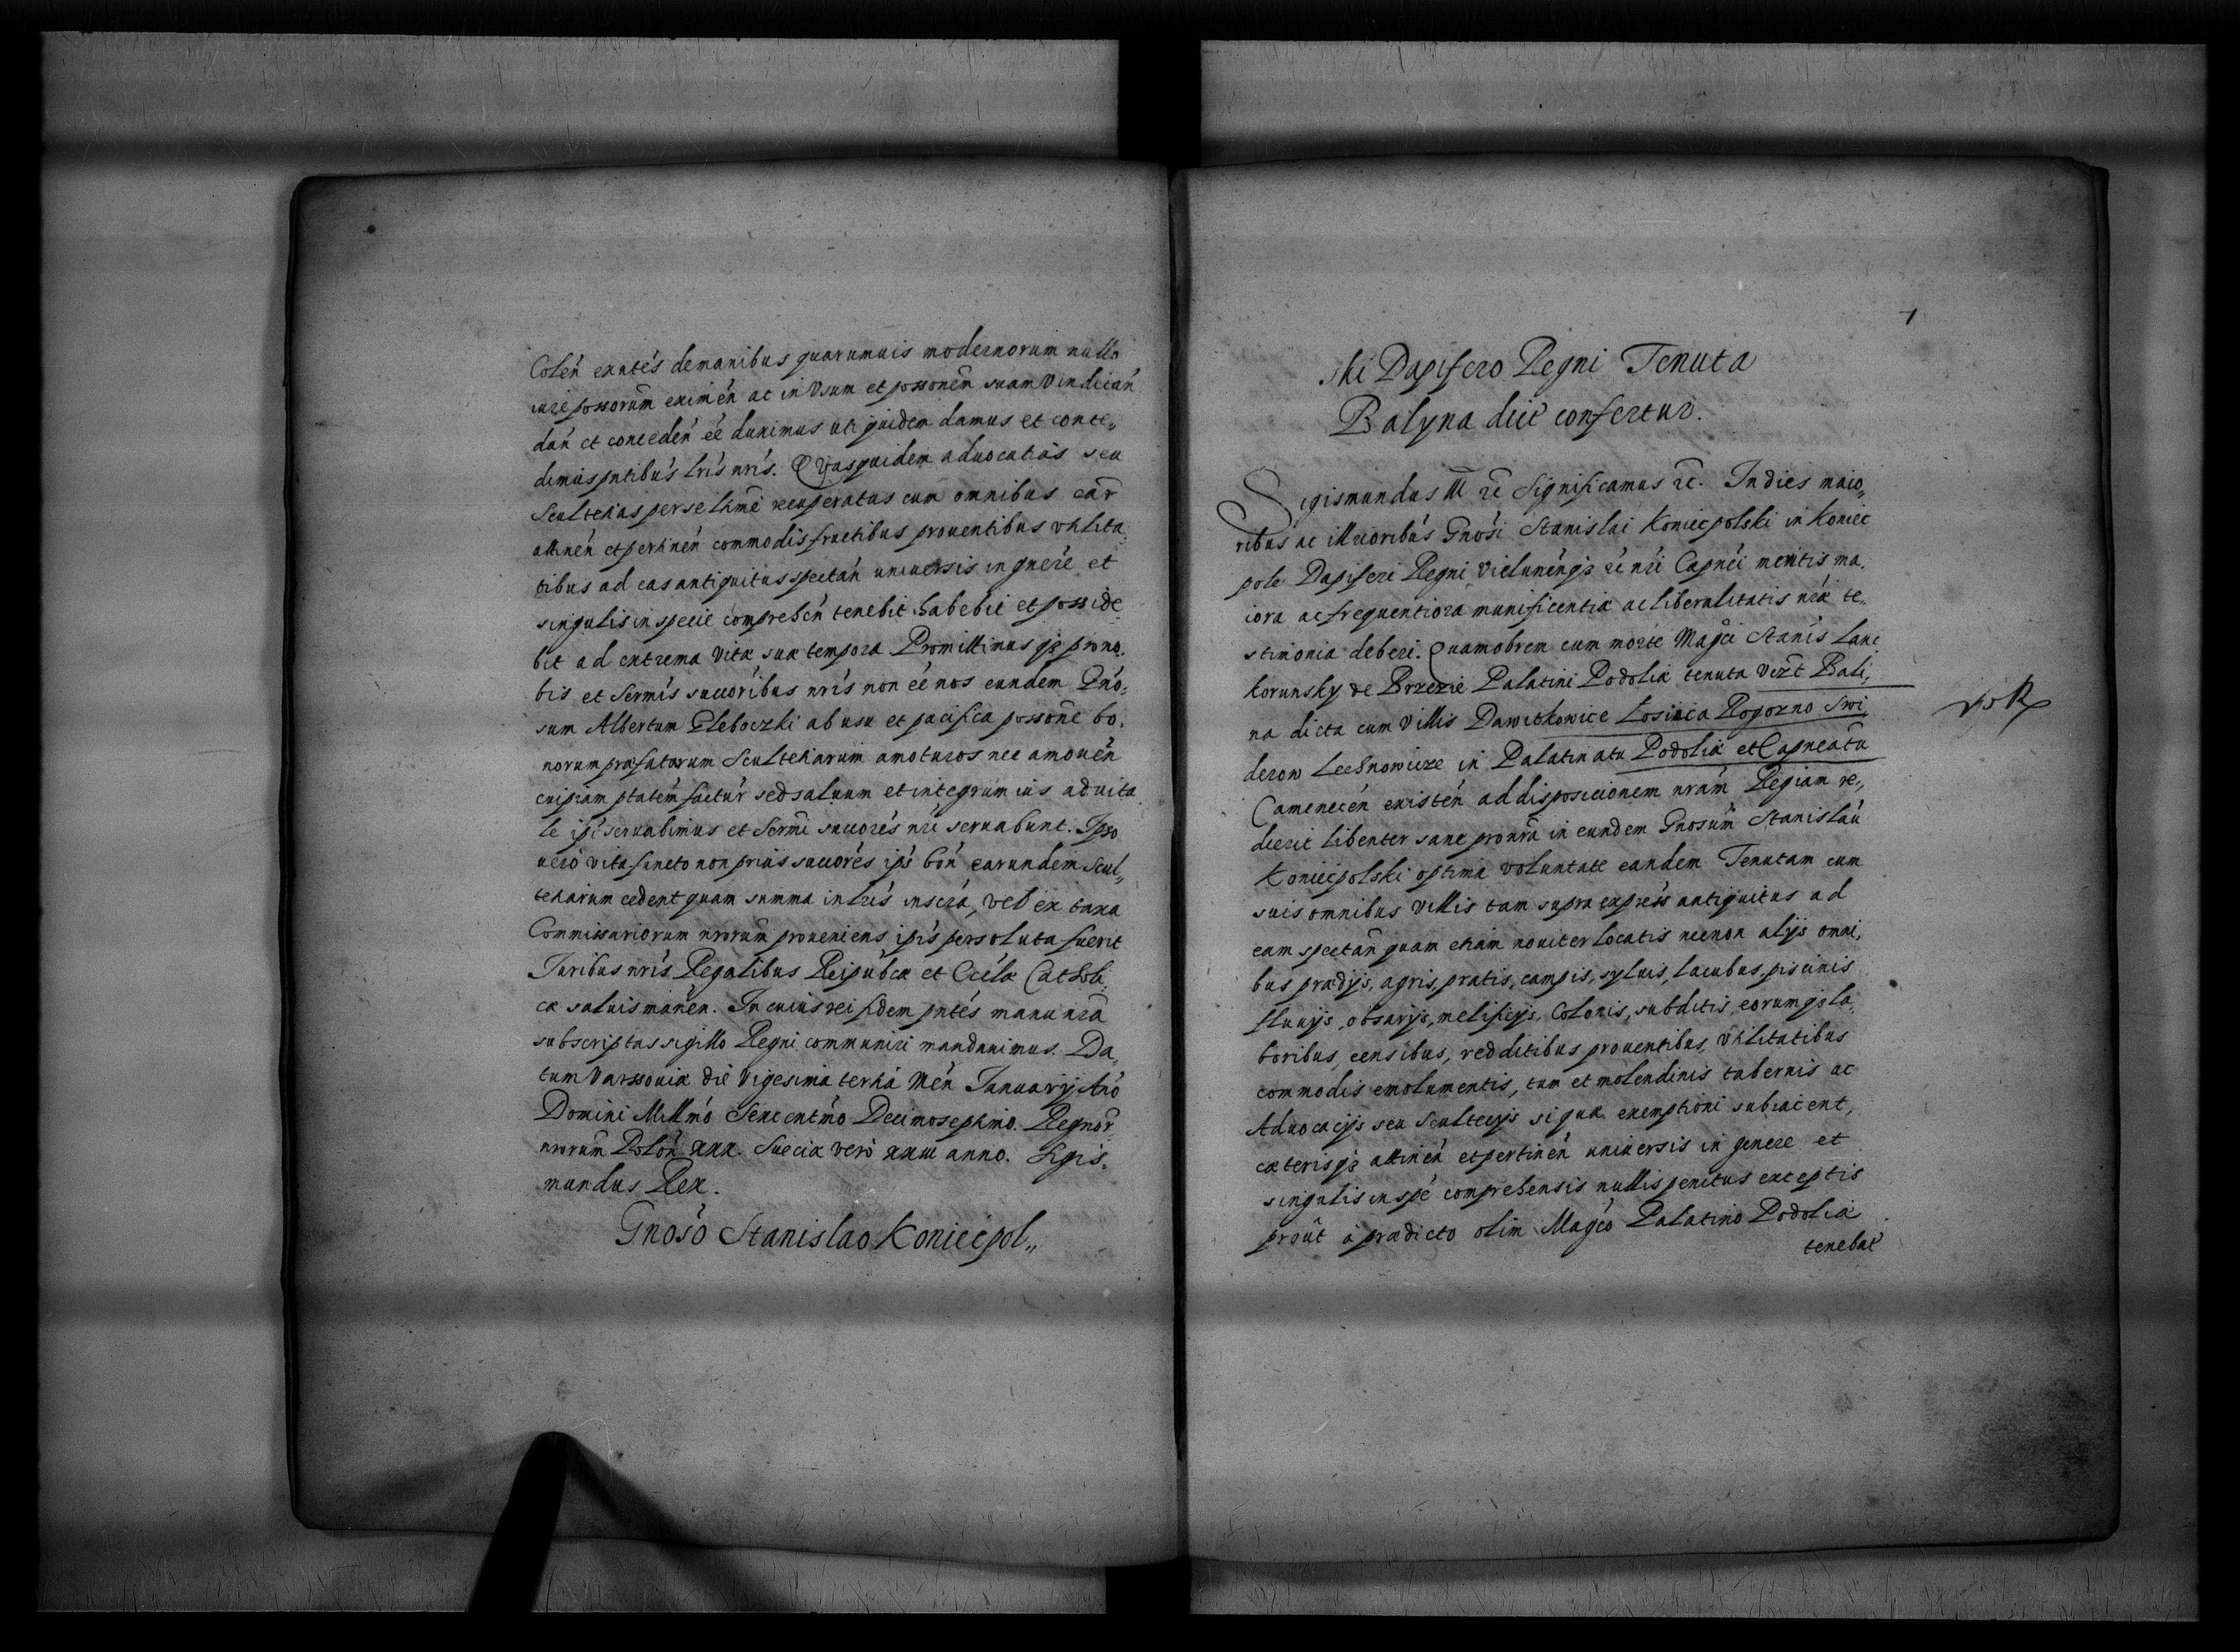 Colen̄ exntes̄ de manibus quarumuis modernorum nullo
iure possorum̄ eximen̄ ac in Vsum et possonem̄ suam Vindican̄
dan̄ et conceden̄ eē duximus uti quidem damus et conce„
dimus pntibus̄ lris̄ nris̄. Quasquidem aduocatias seu
Scultetias per se lḡme recuperatas cum omnibus ear̄
attinen̄ et pertinen̄ commodis fructibus prouentibus vtilita„
tibus ad eas antiquitus spectan̄ uniuersis in gnere̅ et
singulis in specie comprehen̄ tenebit habebit et posside„
bit ad extrema Vitæ suæ tempora Promittimus qȝ pro no„
bis et Sermis̄ succoribus̄ nris̄ non eē nos eundem Gno„
sum Albertum Gleboczki ab usu et pacifica possone̅ bo„
norum præfatorum Scultetiarum amoturos nec amouen̄
cuipiam ptatem̄ factur̄ sed saluum et integrum ius aduita„
le ipi seruabimus et Sermi̅ succores̄ nri̅ seruabunt. Ipso
uero vita functo non prius succores̄ ipī bon̄ earundem Scul„
tetiarum cedent quam summa in lris̄ inscra̅, vel ex taxa
Commissariorum nrorum̄ proueniens ipis̄ persoluta fuerit
Juribus nris̄ Regalibus Reipub̄cæ et Ecclǣ Catholi„
cæ saluis manen̄. In cuius rei fidem pntes̄ manu nra̅
subscriptas sigillo Regni communiri mandauimus. Da„
tum Varssouiæ die Vigesima tertia Men̄ Januarij Ano̅
Domini Millmo̅ Sexcentmo̅ Decimoseptimo. Regnor̄
nrorum̄ Polon̄ xxx. Sueciæ vero xxiii anno. Sigis„
mundus Rex.
Gnoso̅ Stanislao Koniecpol„
ski Dapifero Regni Tenuta
Balyna dict̄ confertur.
Sigismundus III ꝛc̄ Significamus ꝛc̄. In dies maio„
ribus ac illrioribus̄ Gnosi̅ Stanislai Koniecpolski in Koniec
pole Dapiferi Regni Vielunen̄qȝ ꝛc̄ nri̅ Capnei̅ meritis ma„
iora ac frequentiora munificentiæ ac liberalitatis nræ̅ te„
stimonia deberi. Quamobrem cum morte Magci̅ Stanis̄ Lanc
korunsky de Brzezie Palatini Podoliæ tenuta Verst̄ Bali„
na dicta cum Villis Dawitkowice Łosiaca Rogozno Swi„
derow Lechnowicze in Palatinatu Podoliæ et Capneatu̅
Camenecen̄ existen̄ ad disposicionem nram̄ Regiam re„
dierit libenter sane pro nra̅ in eundem Gnosum̄ Stanislau̅
Koniecpolski optima voluntate eandem Tenutam cum
suis omnibus Villis tam supra express̄ antiquitus ad
eam spectan̄ quam etiam nouiter locatis necnon alijs omni„
bus prædijs, agris, pratis, campis, syluis, lacubus, piscinis
fluuijs, obsarijs, melificijs, Colonis, subditis, eorumqȝ la„
boribus, censibus, redditibus prouentibus, Vtilitatibus
commodis emolumentis, tum et molendinis tabernis ac
Aduocacijs seu Scultecijs si quæ exemptioni subiacent,
cæterisqȝ attinen̄ et pertinen̄ uniuersis in genere et
singulis in spe̅ comprehensis nullis penitus exceptis
prout a prædicto olim Magco̅ Palatino Podoliæ
tenebat̄